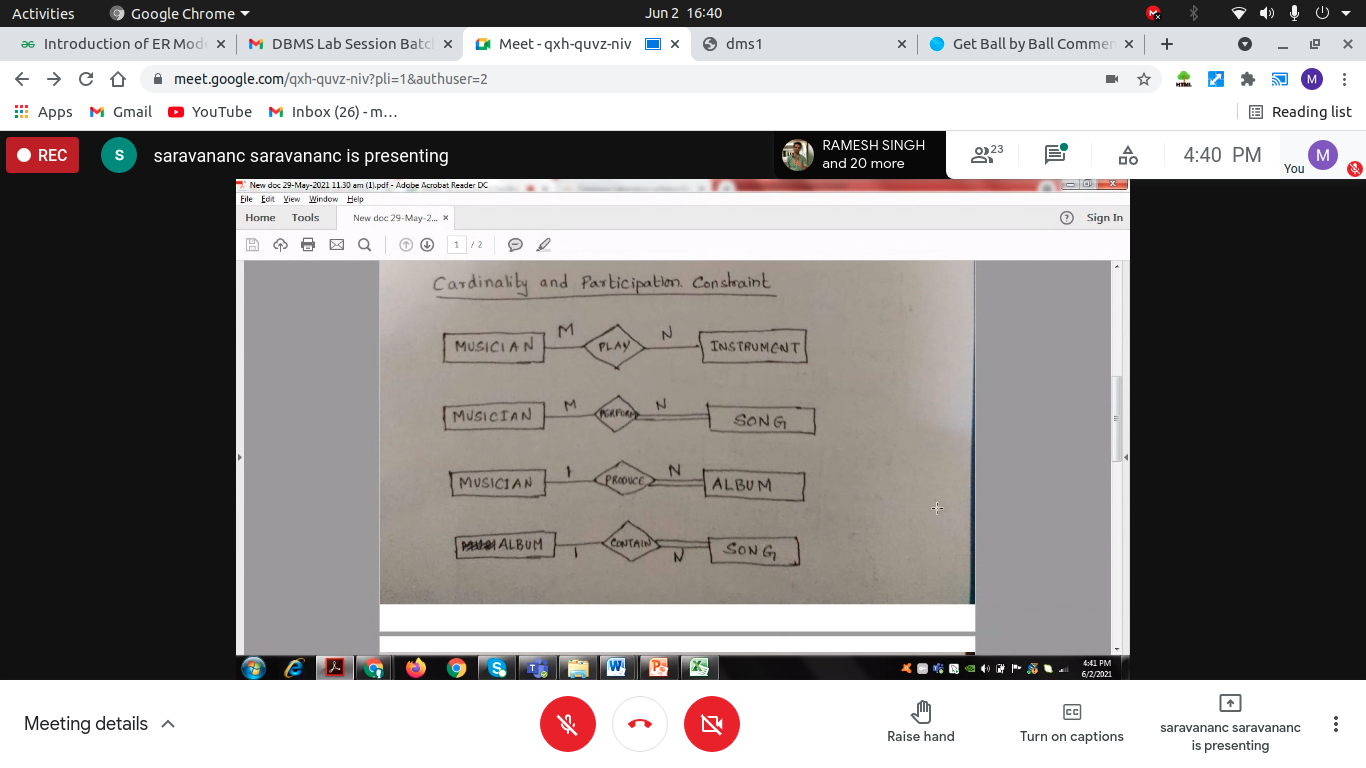 Activities Google Chrome Jun 2 16:40
Introduction of ER Mode DBMS Lab Session Batc Meet - qxh-quvz-niv dms1 Get Ball by Ball Commen
meet.google.com/qxh-quvz-niv?pli=1&authuser=2 M
Apps Gmail YouTube Inbox (26) - m… Reading list
REC S saravananc saravananc is presenting RAMESH SINGH
and 20 more 23 4:40 PM You M
New doc 29-May-2021 11.30 am (1).pdf - Adobe Acrobat Reader DC
File Edit View Window Help
Home Tools New doc 29-May-2... × Sign In
1 / 2
Cardinality and Participation. Constraint
MUSICIAN M PLAY N INSTRUMENT
MUSICIAN M PERFORM N SONG
MUSICIAN 1 PRODUCE N ALBUM
ALBUM 1 CONTAIN N SONG
4:41 PM
6/2/2021
Meeting details Raise hand Turn on captions saravananc saravananc
is presenting